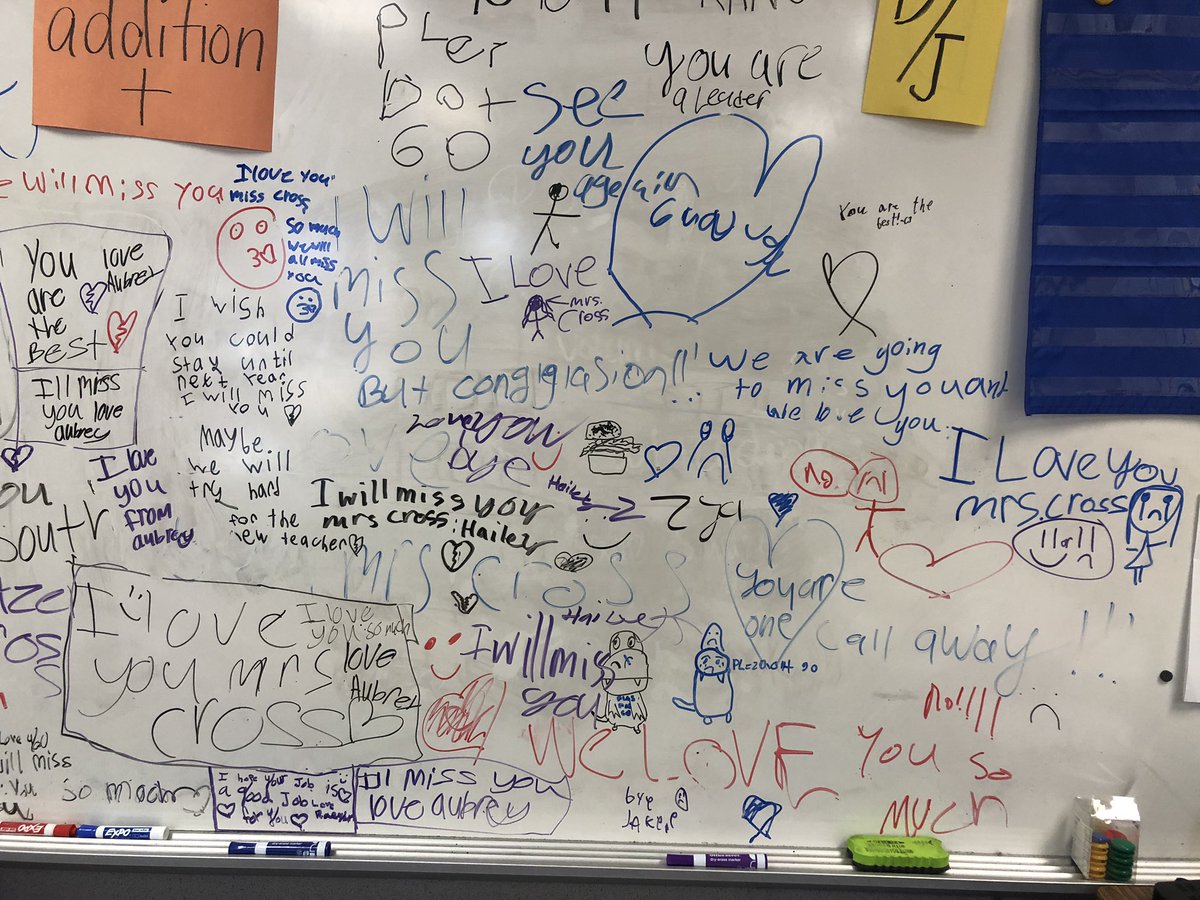 addition
+
PLer
Dot
GO
You are
a leader
D/J
see
you
age ain
will miss you
I love you
miss cross
so much
we will
all miss
you
I will
miss
you
But congiglasion!!
I LOVE
mrs.
Cross
You are the
best!
we are going
to miss you ant
we love you
You
are
the
Best
love
Aubrey
Ill miss
you love
aubrey
I wish
You could
stay until
next year
I will miss
you
maybe
we will
try hard
for the
new teacher
I love
you
from
aubrey
Love you
bye
I will miss you
mrs cross: Hailey
Hailey
No.
I Love you
mrs.cross
mrs cross
you are
one
call away!!!
I love
you mrs
cross
I love
you so much
love
Aubrey
Hailey
I will miss
you
PLease dont go
No!!!!
We LOVE you so
much
love you
will miss
so much
I hope your Job is
a good Job Love
for you
Ill miss you
love aubrey
bye
EXPO
EXPO